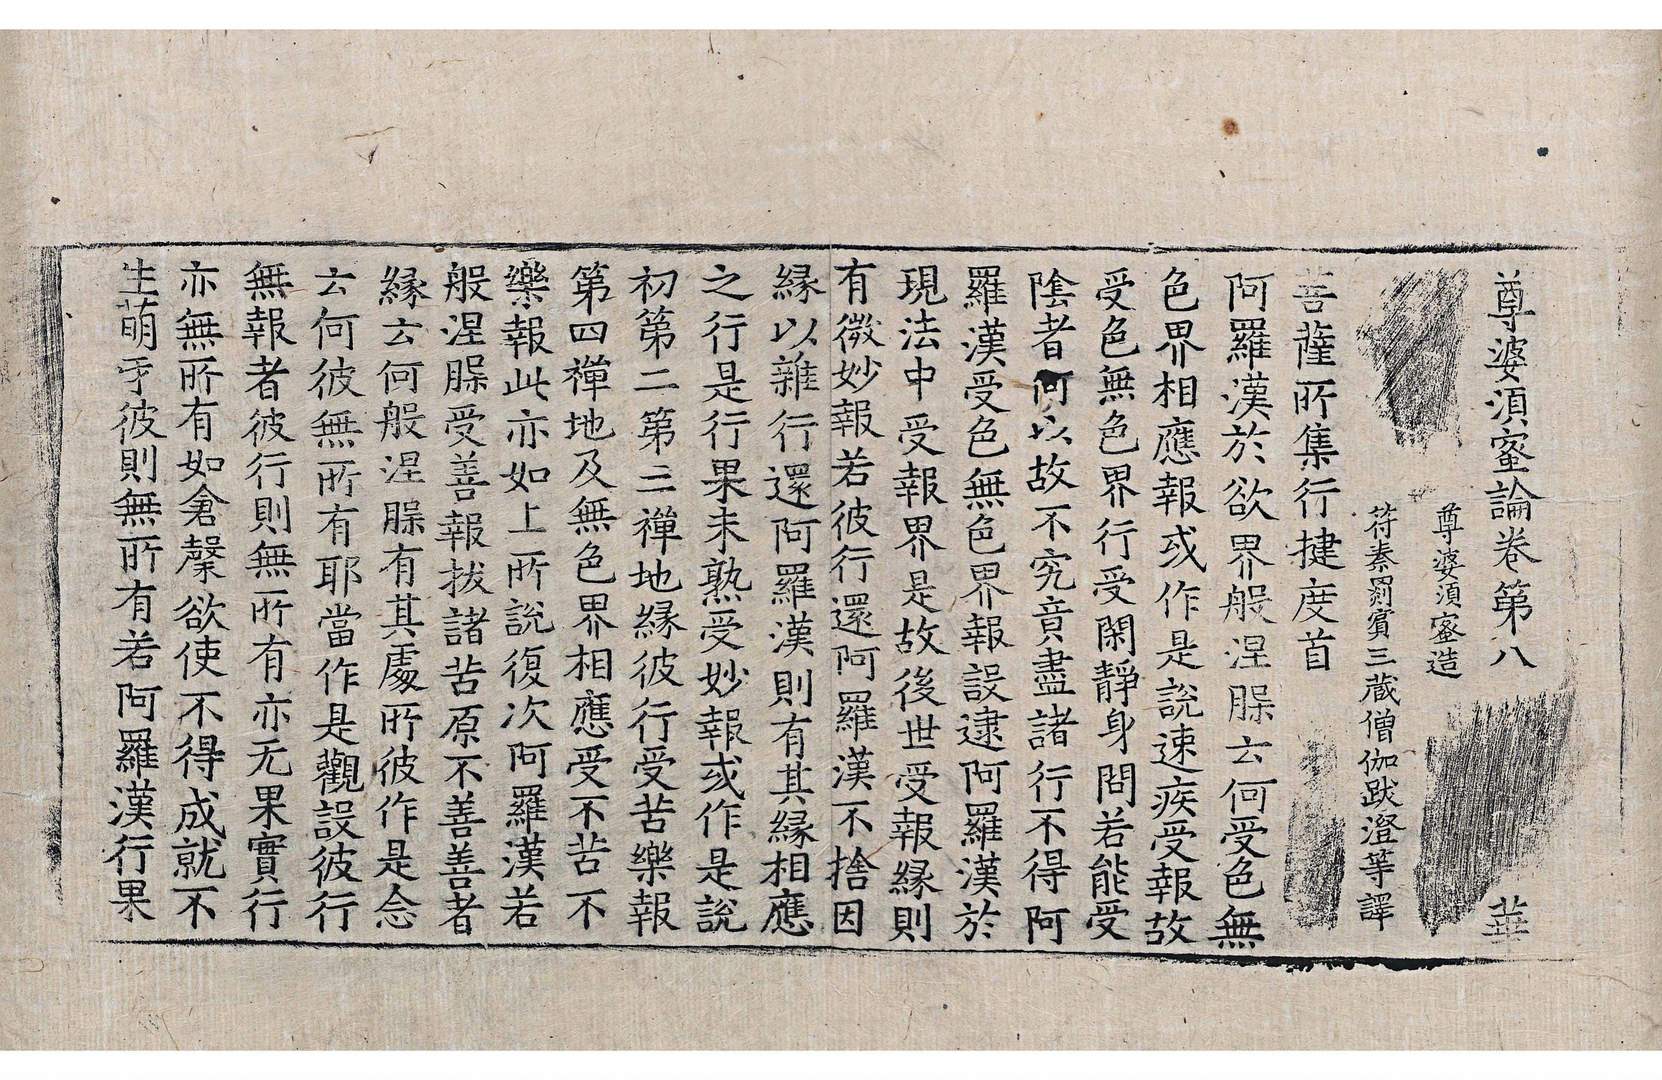 尊婆須蜜論卷第八 華
尊婆須蜜造
苻秦罽賓三蔵僧伽跋澄等譯
菩薩所集行揵度首
阿羅漢於欲界般涅䐗云何受色無
色界相應報或作是說速疾受報故
受色無色界行受閑靜身問若能受
陰者何以故不究竟盡諸行不得阿
羅漢受色無色界報設逮阿羅漢於
現法中受報界是故後世受報緣則
有微妙報若彼行還阿羅漢不捨因
緣以雜行還阿羅漢則有其緣相應
之行是行果未熟受妙報或作是說
初第二第三禪地緣彼行受苦樂報
第四禪地及無色界相應受不苦不
樂報此亦如上所說復次阿羅漢若
般涅䐗受善報拔諸苦原不善善者
緣云何般涅䐗有其處所彼作是念
云何彼無所有耶當作是觀設彼行
無報者彼行則無所有亦无果實行
亦無所有如倉𪍿欲使不得成就不
生萌牙彼則無所有若阿羅漢行果